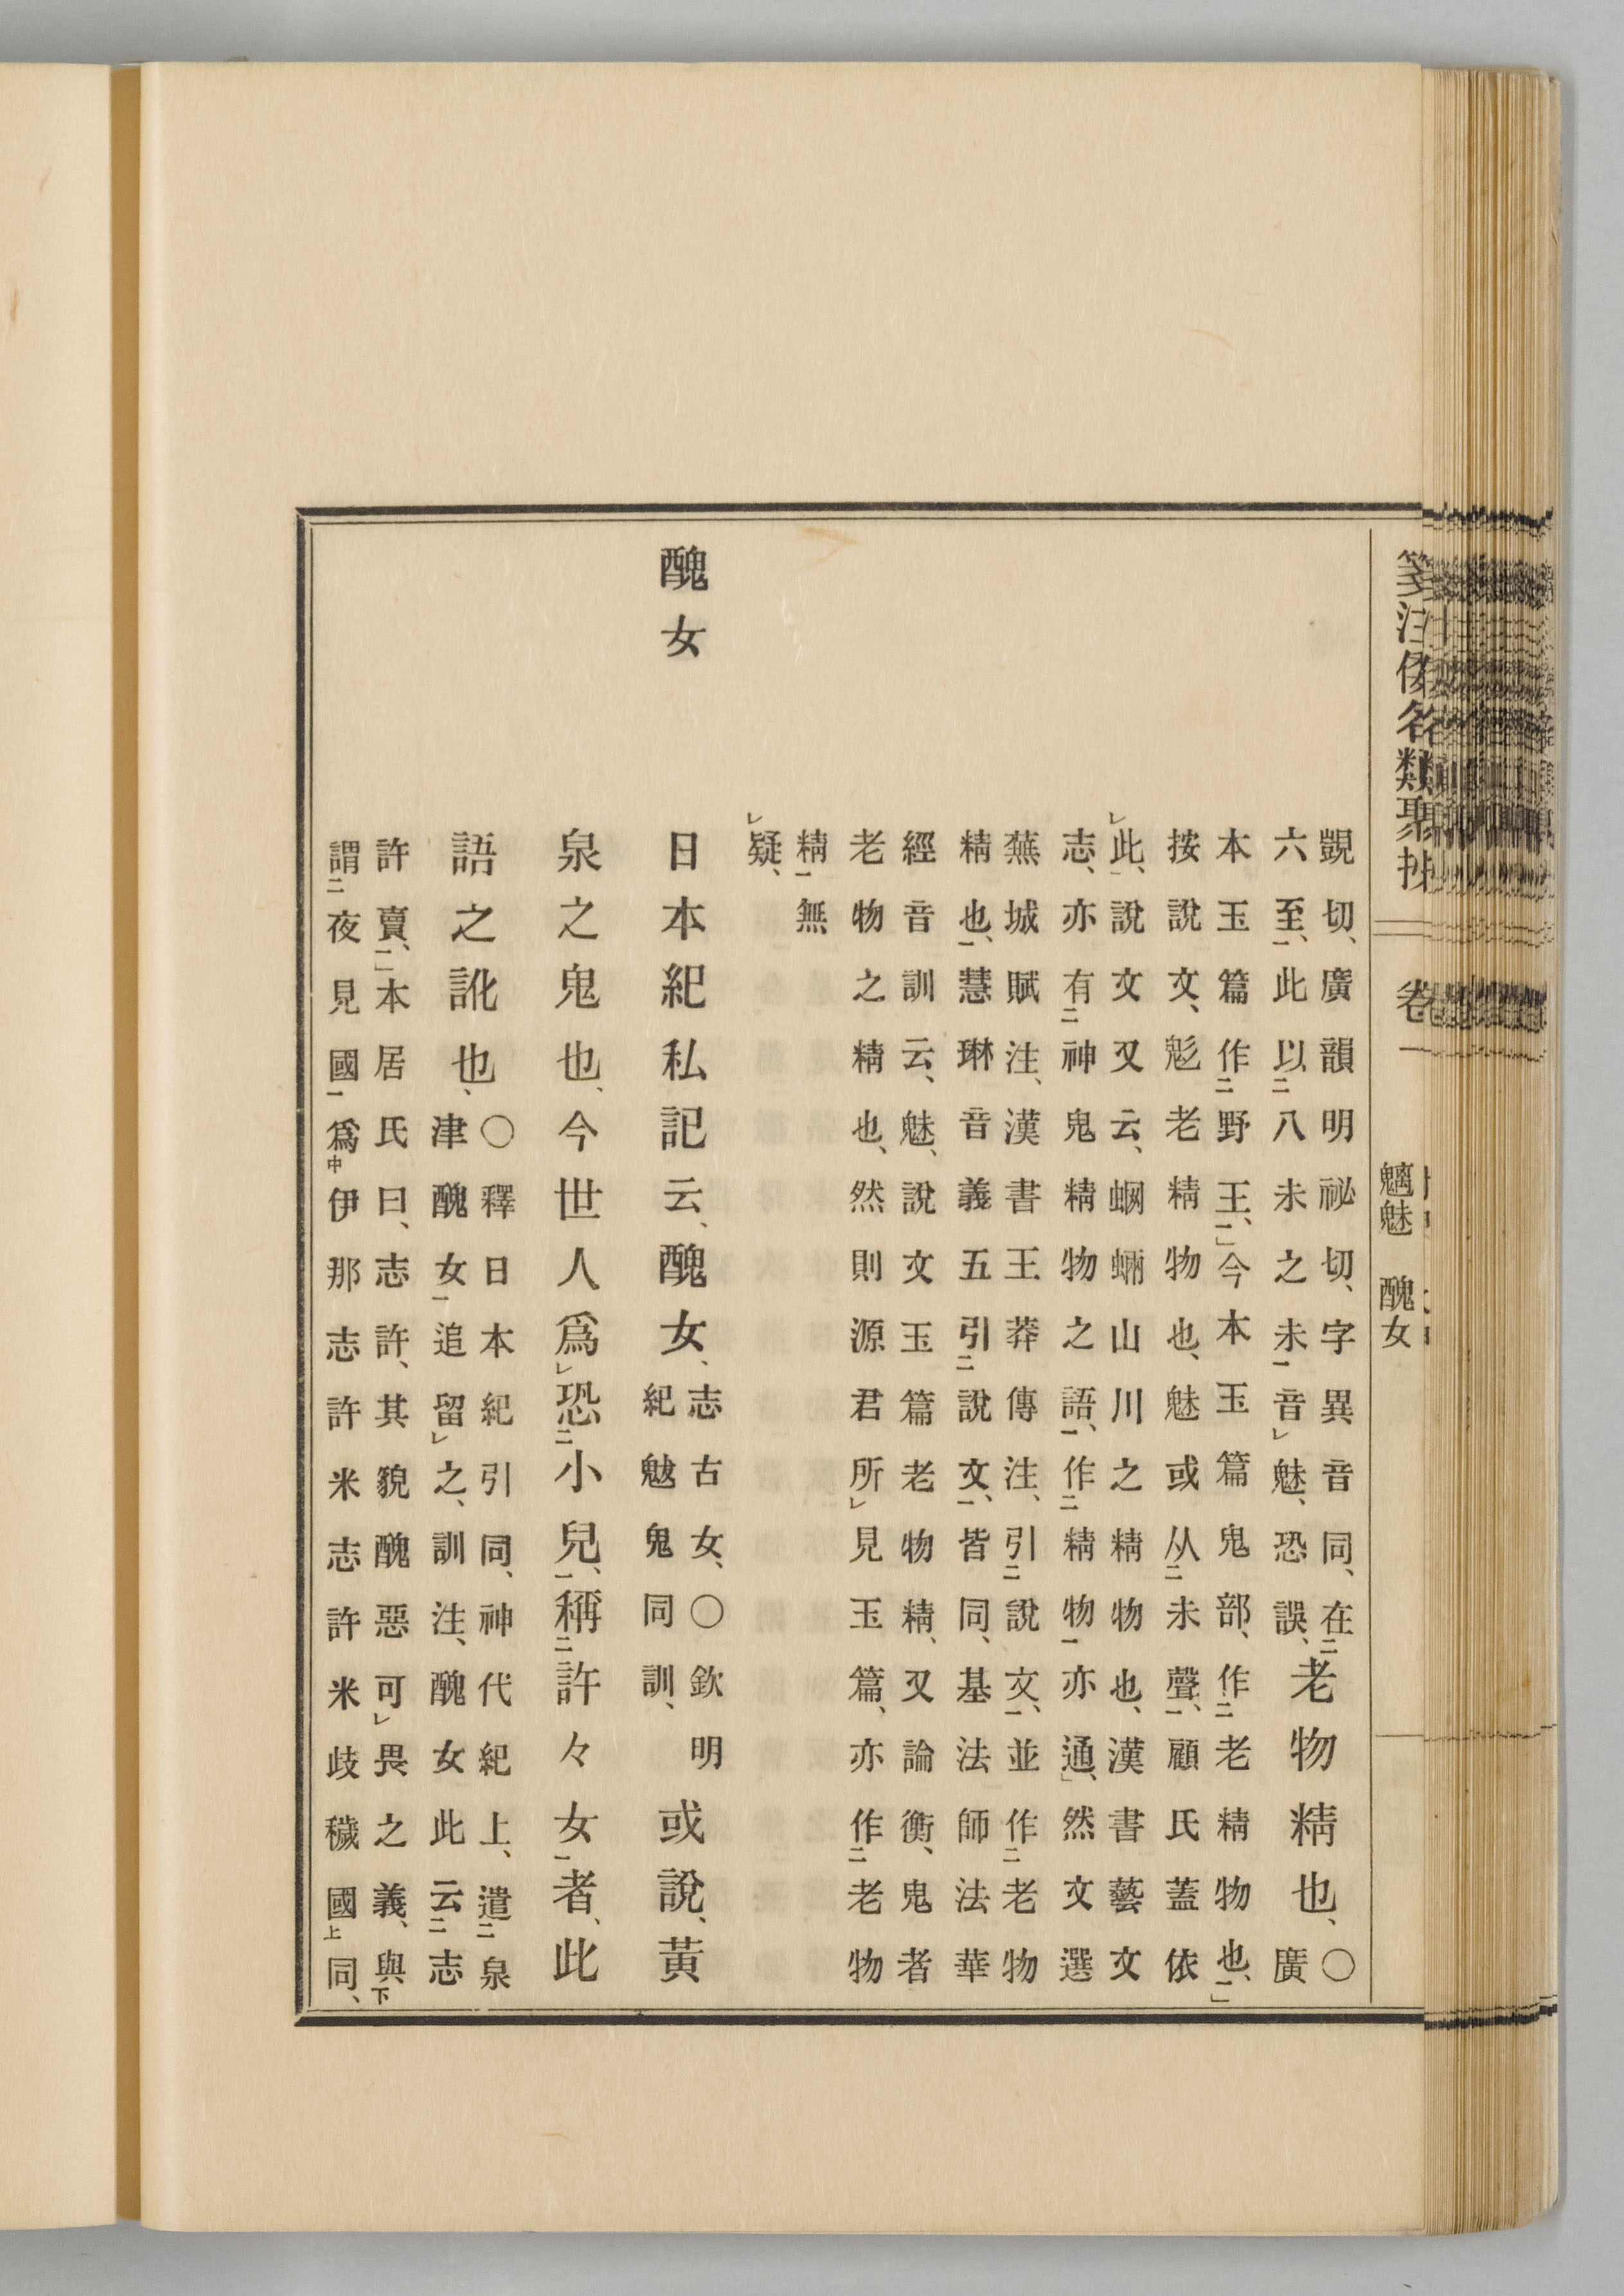 箋注倭名類聚抄 卷一 魑魅 醜女
覬切、廣韻明祕切、字異音同、在二
六至一、此以二八未之未一音レ魅、恐誤、老物精也、○廣
本玉篇作二野王一、」今本玉篇鬼部、作二老精物也一、」
按說文、鬽老精物也、魅或从二未聲一、顧氏蓋依
レ此、說文又云、蛧蜽山川之精物也、漢書藝文
志、亦有二神鬼精物之語一、作二精物一亦通、」然文選
蕪城賦注、漢書王莽傳注、引二說文一、並作二老物
精也一、慧琳音義五引二說文一、皆同、基法師法華
經音訓云、魅、說文玉篇老物精、又論衡、鬼者
老物之精也、然則源君所レ見玉篇、亦作二老物
精一無
レ疑、
醜女
日本紀私記云、醜女、志古女、○欽明紀魃鬼同訓、或說、黃
泉之鬼也、今世人爲レ恐二小兒一、稱二許々女一者、此
語之訛也、○釋日本紀引同、神代紀上、遣二泉
津醜女一追留レ之、訓注、醜女此云二志
許賣一、」本居氏曰、志許、其貌醜惡可レ畏之義、與下
謂二夜見國一爲中伊那志許米志許米歧穢國上同、